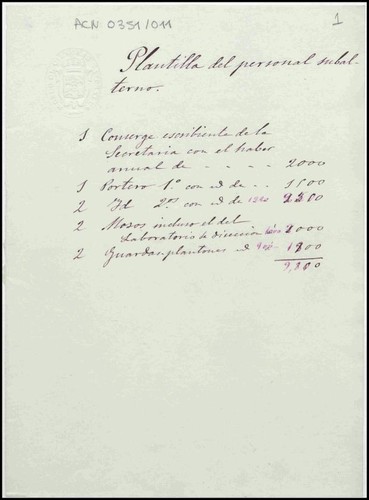 ACN 0351/011
1
Plantilla del personal subal-
terno.
1 Conserge escribiente de la
Secretaria con el haber
anual de - - - 2000
1 Portero 1º con id de - - 1500
2 Id 2os con id de 1250 2500
2 Mozos incluso el del
Laboratorio de direccion 2000
2 Guardas-plantones id 1800
9,800